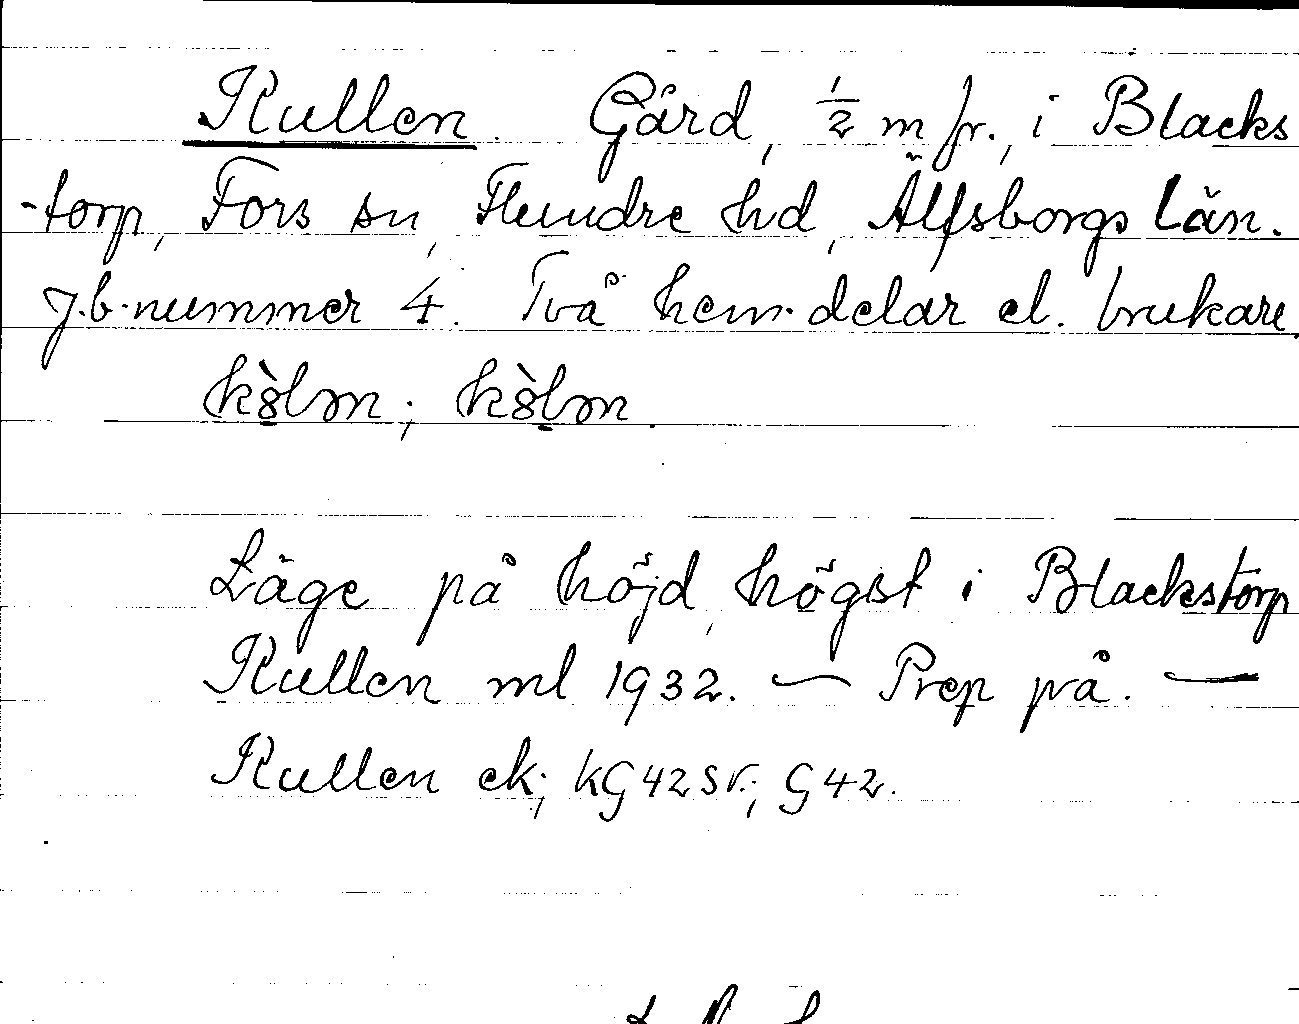 Kullen. Gård, ½ m fr., i Blacks
-torp, Fors sn, Flundre hd, Älfsborgs Län.
J.b. nummer 4. Två hem. delar el. brukare.
Läge på höjd, högst i Blackstorp
Kullen ml 1932. — Prep på. —
Kullen ek; KG42SV.; G42.